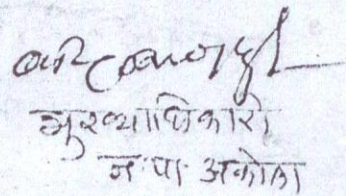 मुख्याधिकारी
न.पा. अकोला